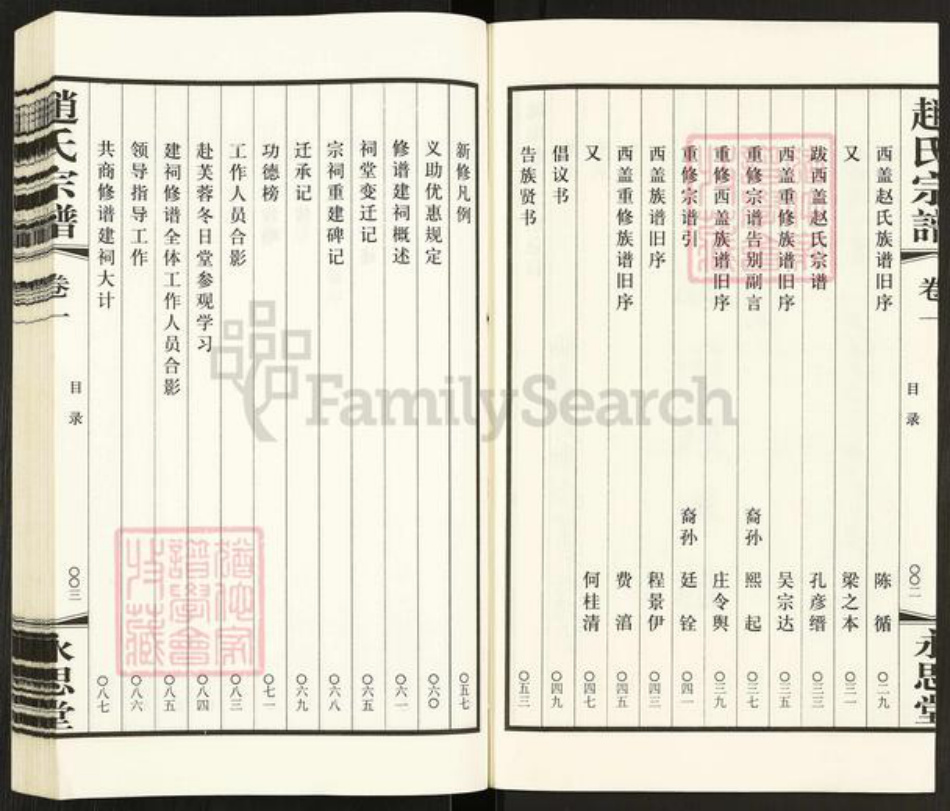 趙氏宗譜
卷一
目录
〇〇二
永思堂
西盖赵氏族谱旧序 陈循 〇二九
又 梁之本 〇三一
跋西盖赵氏宗谱 孔彦缙 〇三三
西盖重修族谱旧序 吴宗达 〇三五
重修宗谱告别副言 裔孙 熙起 〇三七
重修西盖族谱旧序 庄令舆 〇三九
重修宗谱引 裔孙 廷铨 〇四一
西盖族谱旧序 程景伊 〇四三
西盖重修族谱旧序 费滔 〇四五
又 何桂清 〇四七
倡议书 〇四九
告族贤书 〇五三
新修凡例 〇五七
义助优惠规定 〇六〇
修谱建祠概述 〇六一
祠堂变迁记 〇六五
宗祠重建碑记 〇六八
迁承记 〇六九
功德榜 〇七一
工作人员合影 〇八三
赴芙蓉冬日堂参观学习 〇八四
建祠修谱全体工作人员合影 〇八五
领导指导工作 〇八六
共商修谱建祠大计 〇八七
趙氏宗譜
卷一
目录
〇〇三
永思堂
FamilySearch